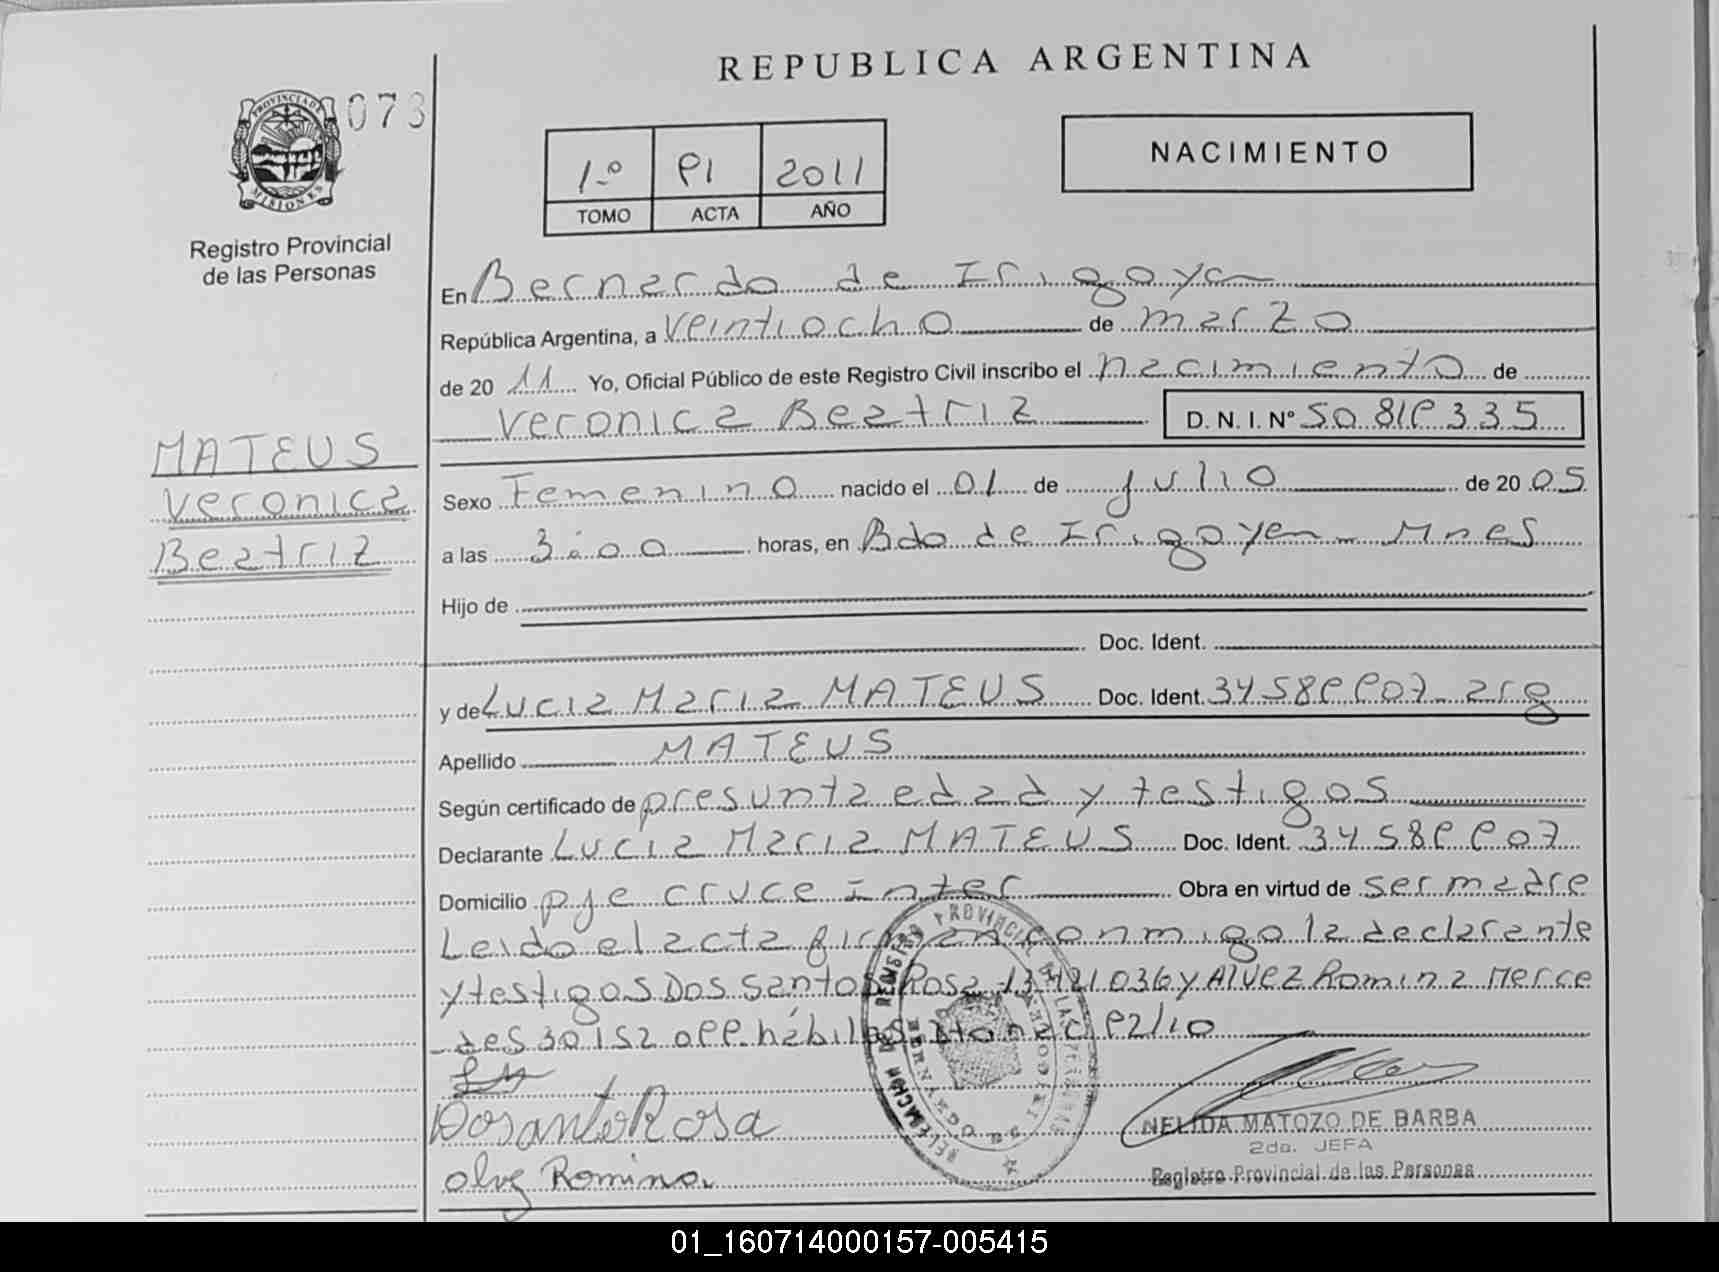 REPUBLICA ARGENTINA
073
PROVINCIA DE MISIONES
Registro Provincial
de las Personas
1º 91 2011
TOMO ACTA AÑO
NACIMIENTO
En Bernardo de Irigoyen
República Argentina, a veintiocho de marzo
de 20 11 Yo, Oficial Público de este Registro Civil inscribo el nacimiento de
Veronica Beatriz D. N. I. Nº 50.819.335
MATEUS
Veronica
Beatriz
Sexo Femenino nacido el 01 de julio de 20 05
a las 3:00 horas, en Bdo de Irigoyen - Mnes
Hijo de
Doc. Ident.
y de Lucia Maria MATEUS Doc. Ident. 34.589.907 - arg
Apellido MATEUS
Según certificado de presunta edad y testigos
Declarante Lucia Maria MATEUS Doc. Ident. 34.589.907
Domicilio pje cruce Inter Obra en virtud de ser madre
Leido el acta firman conmigo la declarante
y testigos Dos Santos Rosa 13.421.036 y Alvez Romina Merce
des 30.152.099 hábiles 92/10
Dosanto Rosa
alvez Romina
NELIDA MATOZO DE BARBA
2da. JEFA
Registro Provincial de las Personas
01_160714000157-005415